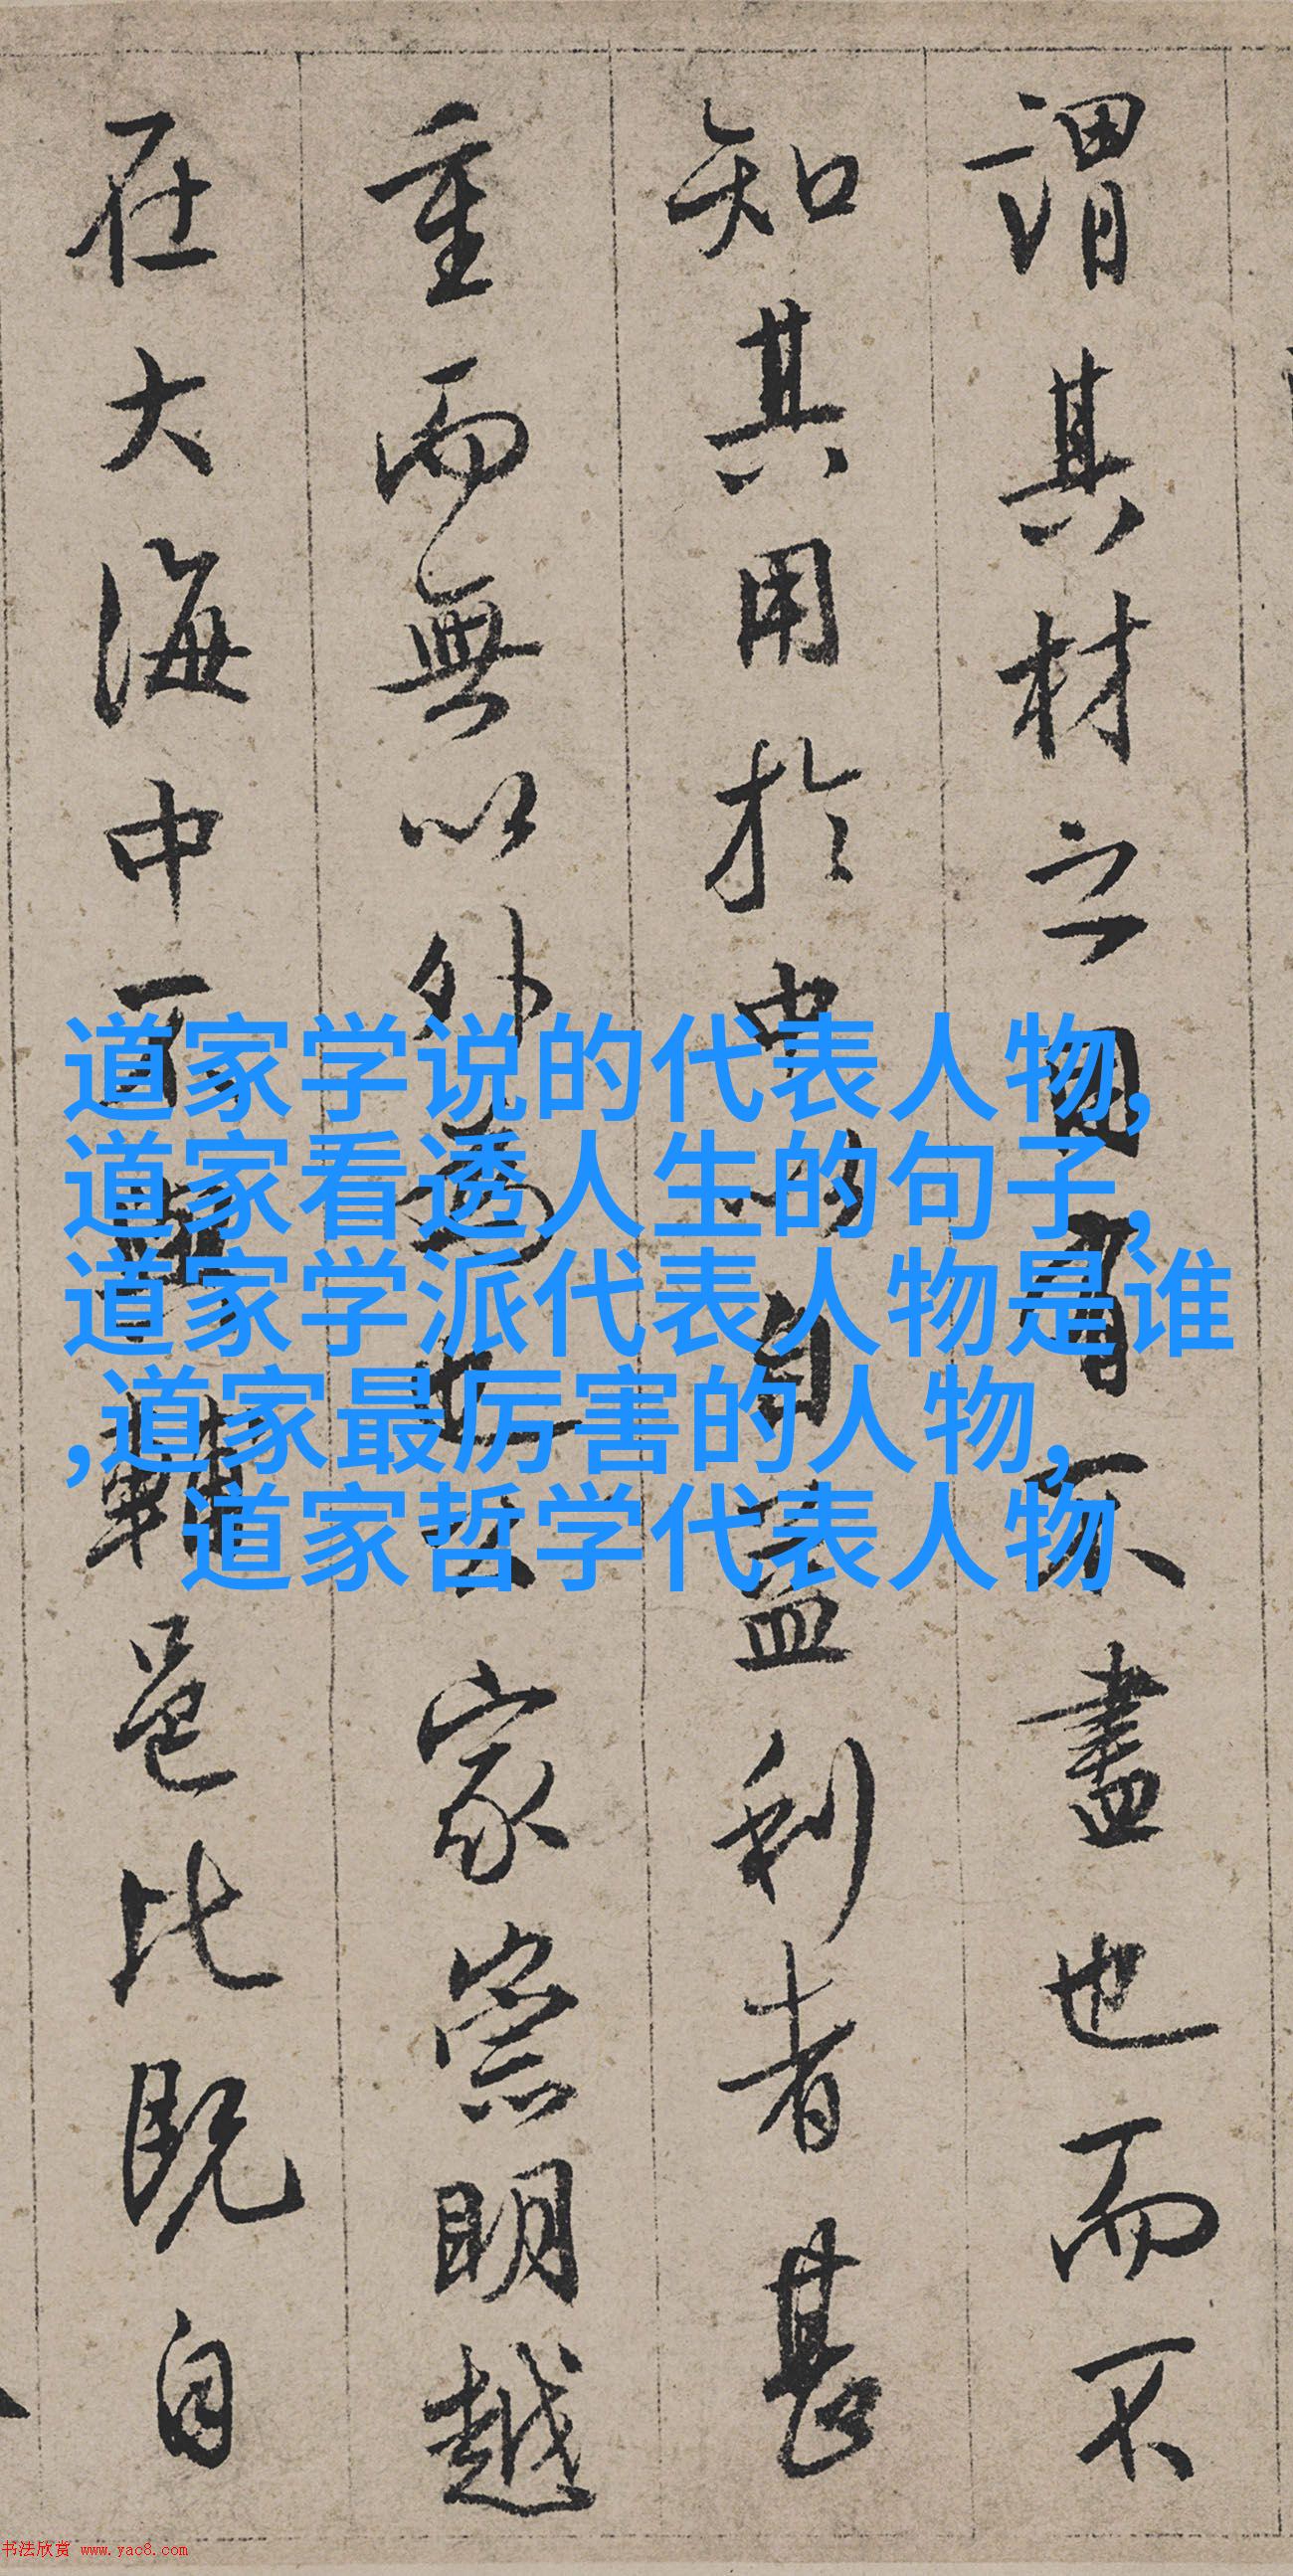 謂其材之用有不盡也而不
知其用於中以自益利者甚
重而無以外為也公家崇明越
在大海中可輔邑比既自
道家学说的代表人物,
道家看透人生的句子,
道家学派代表人物是谁
,道家最厉害的人物,
道家哲学代表人物
书法欣赏 www.yac8.com